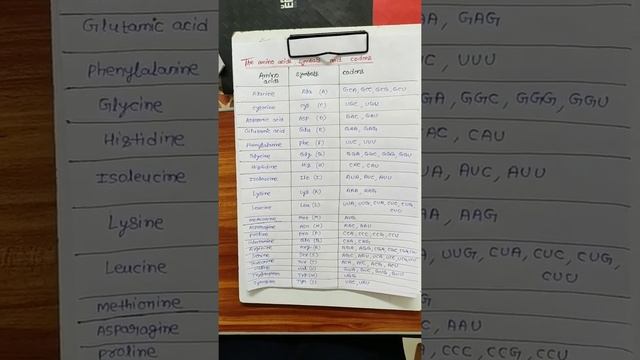 The amino acids symbols and codons
Amino acids symbols codons
Alanine Ala (A) GCA, GCC, GCG, GCU
Cysteine Cys (C) UGC, UGU
Aspartic acid Asp (D) GAC, GAU
Glutamic acid Glu (E) GAA, GAG
Phenylalanine Phe (F) UUC, UUU
Glycine Gly (G) GGA, GGC, GGG, GGU
Histidine His (H) CAC, CAU
Isoleucine Ile (I) AUA, AUC, AUU
Lysine Lys (K) AAA, AAG
Leucine Leu (L) UUA, UUG, CUA, CUC, CUG, CUU
Methionine Met (M) AUG
Asparagine Asn (N) AAC, AAU
Proline Pro (P) CCA, CCC, CCG, CCU
Gln (Q) CAA, CAG
Arginine Arg (R) AGA, AGG, CGA, CGC
Serine Ser (S) AGC, AGU, UCA, UCC
Thr (T) ACA, ACC, ACG, ACU
Valine Val (V) GUA, GUC, GUG, GUU
Tryptophan Trp (W) UGG
Tyrosine Tyr UAC, UAU
Glutamic acid
Phenylalanine
Glycine
Histidine
Isoleucine
Lysine
Leucine
Methionine
Asparagine
Proline
AA, GAG
C, UUU
GA, GGC, GGG, GGU
AC, CAU
UA, AUC, AUU
AA, AAG
A, UUG, CUA, CUC, CUG,
CUU
G
C, AAU
A, CCC, CCG, CCU